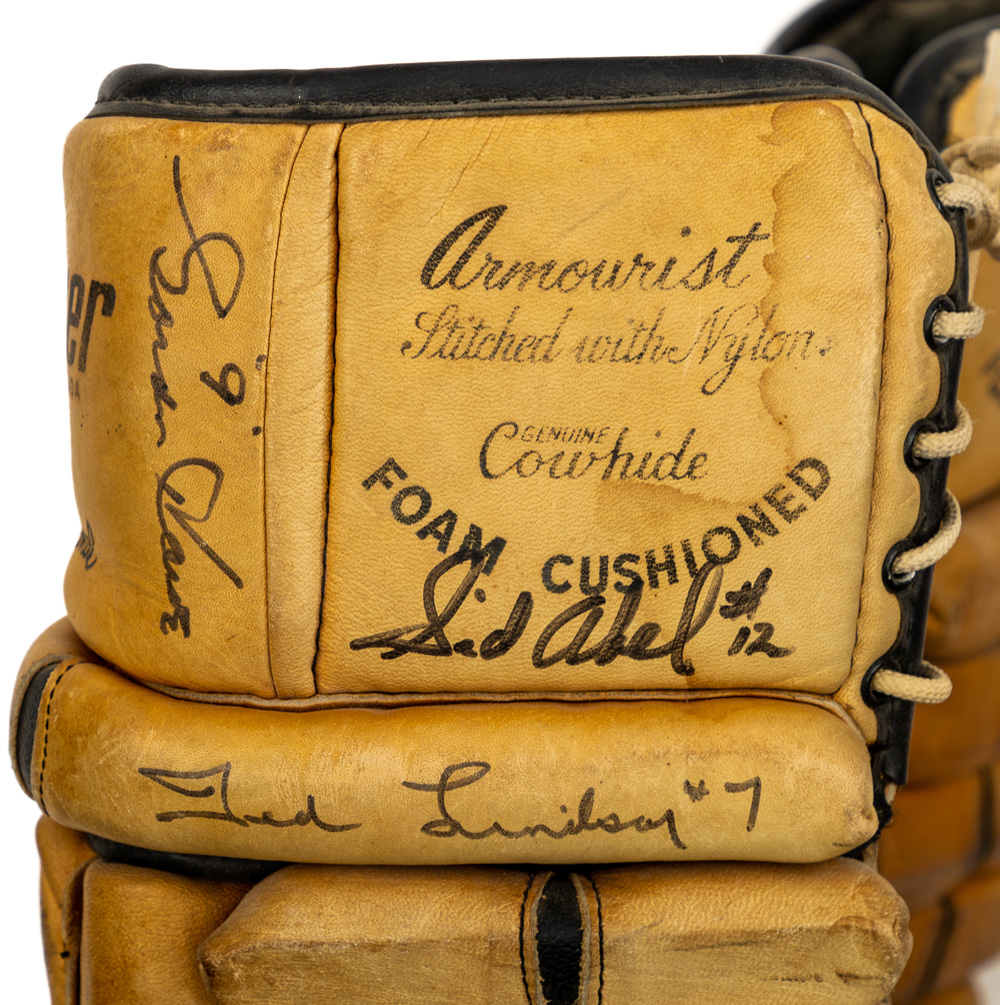 er
DA
Gordon Howe
"9"
Armourist
Stitched with Nylon
GENUINE
Cowhide
FOAM CUSHIONED
Sid Abel #12
Ted Lindsay #7